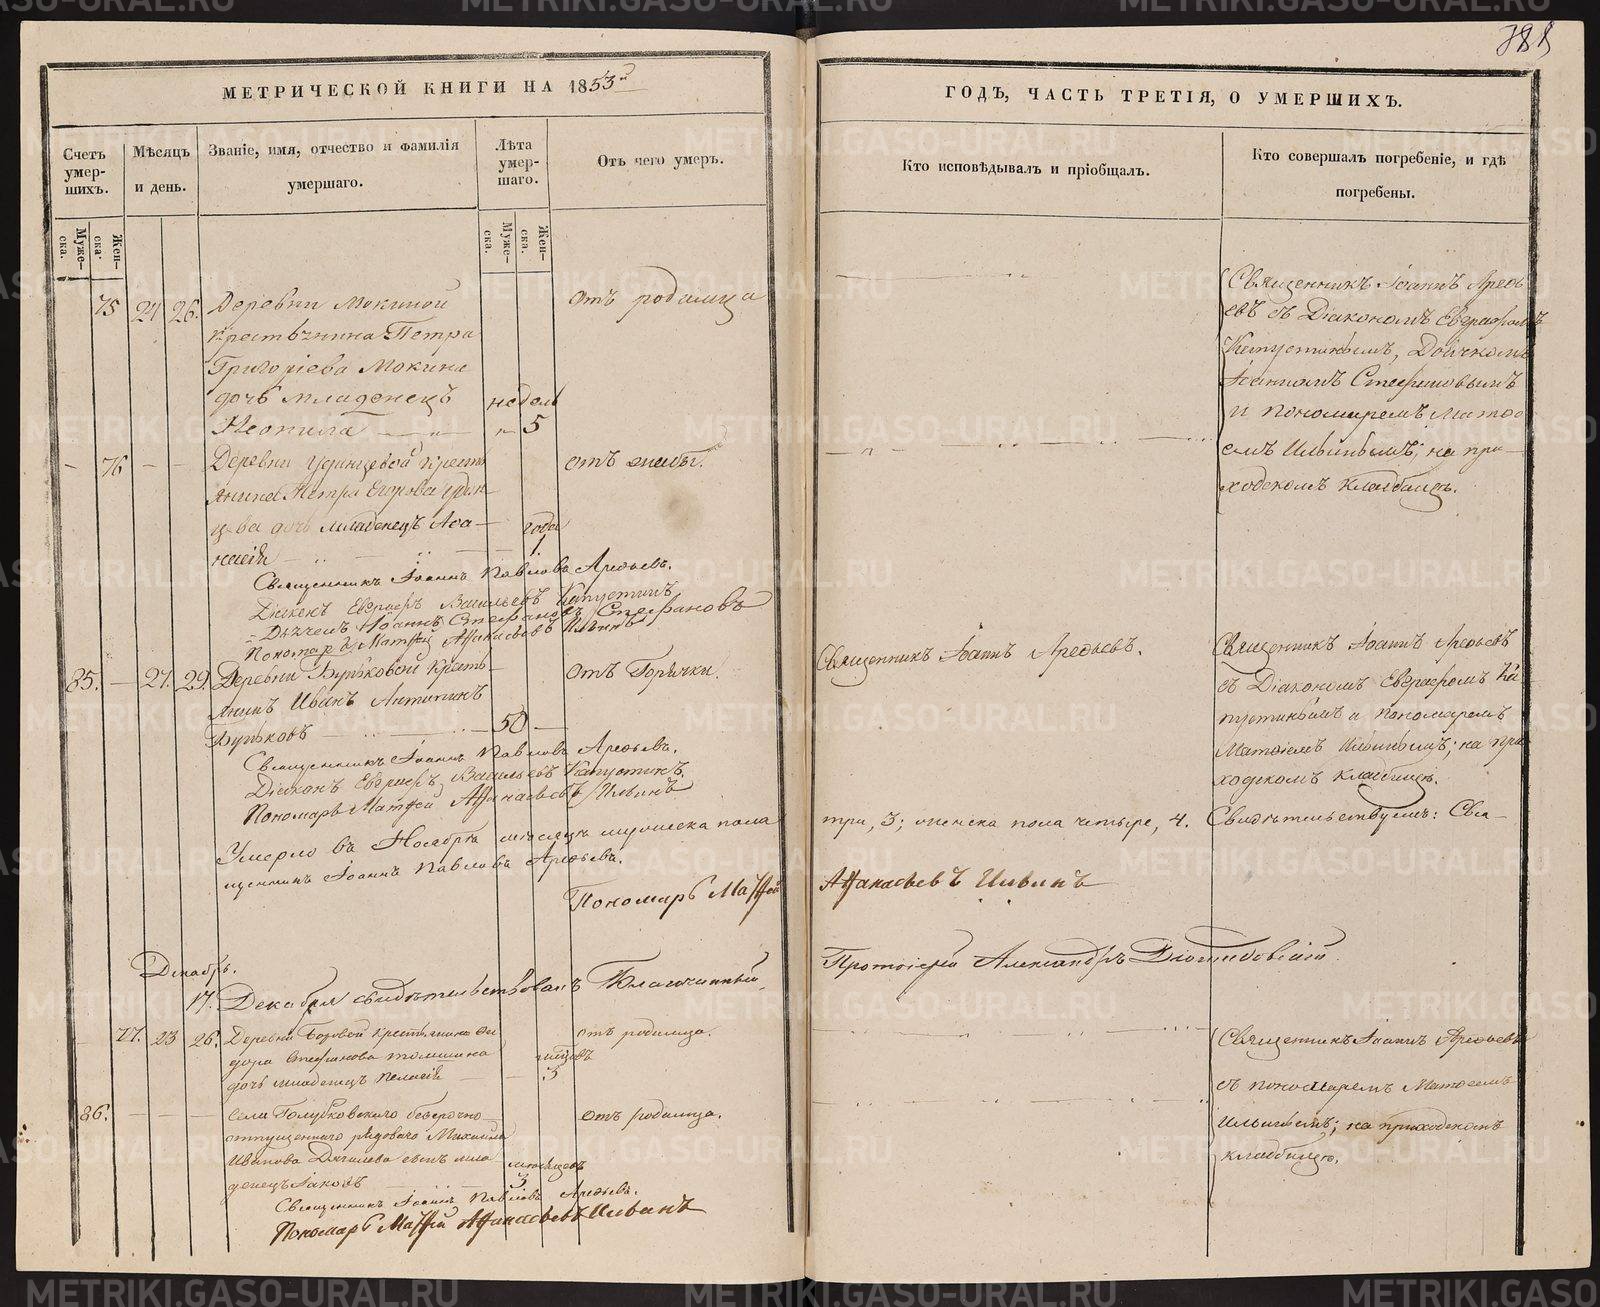 388
МЕТРИЧЕСКОЙ КНИГИ НА 1853й
ГОДЪ, ЧАСТЬ ТРЕТІЯ, О УМЕРШИХЪ.
Счетъ умер-шихъ.
Мѣсяцъ и день.
Званіе, имя, отчество и фамилія умершаго.
Лѣта умер-шаго.
Отъ чего умеръ.
Кто исповѣдывалъ и пріобщалъ.
Кто совершалъ погребеніе, и гдѣ погребены.
Муже-ска.
Жен-ска.
Муже-ска.
Жен-ска.
75 24 26. Деревни Мокиной
отъ родимца
крестьянина Петра
Григоріева Мокина
дочь младенецъ недель
Неонила 5
Священникъ Іоаннъ Арефь
евъ съ Діакономъ Евграфомъ
Капустинымъ, Дьячкомъ
Іоанномъ Стефановымъ
и пономаремъ Матѳе
емъ Ильинымъ; на при-
ходскомъ кладбищѣ.
76 Деревни Удинцевой кресть
отъ
янина Петра Егорова Удин-
цева дочь младенецъ Ана- года
насія 1
Священникъ Іоаннъ Павловъ Арефьевъ.
Діаконъ Евграфъ Васильевъ Капустинъ
Дьячекъ Іоаннъ Стефановъ Стефановъ
Пономарь Матфей Афанасьевъ Ильинъ
85. 27. 29. Деревни Бучковой кресть-
отъ Горячки.
янинъ Иванъ Антипинъ
50
Священникъ Іоаннъ Арефьевъ.
Священникъ Іоаннъ Арефьевъ
съ Діакономъ Евграфомъ Ка-
пустинымъ и пономаремъ
Матѳіемъ Ильинымъ; на при
ходскомъ кладбищѣ.
Священникъ Іоаннъ Павловъ Арефьевъ.
Діаконъ Евграфъ Васильевъ Капустинъ
Пономарь Матфей Афанасьевъ Ильинъ
Умерло въ Ноябрѣ мѣсяцѣ мужеска пола три, 3; женска пола четыре, 4. Свидѣтельствуемъ: Свя-
щенникъ Іоаннъ Павловъ Арефьевъ.
Пономарь Матфей Афанасьевъ Ильинъ
Декабрь.
17. Декабря свидѣтельствовалъ Благочинный, Протоіерей Александръ
77. 23 26. Деревни Боровой крестьянина Си
отъ родимца.
дора Стефанова Томшина мѣсяцовъ
дочь младенецъ Пелагія 3
Священникъ Іоаннъ Арефьевъ
съ пономаремъ Матѳеемъ
Ильинымъ; на приходскомъ
кладбищѣ.
86. Села Голубковского безсрочно-
отъ родимца.
отпущеннаго рядоваго Михаила
Иванова Данилова сынъ мла мѣсяцовъ
денецъ Іаковъ 3
Священникъ Іоаннъ Павловъ Арефьевъ.
Пономарь Матфей Афанасьевъ Ильинъ
METRIKI.GASO-URAL.RU